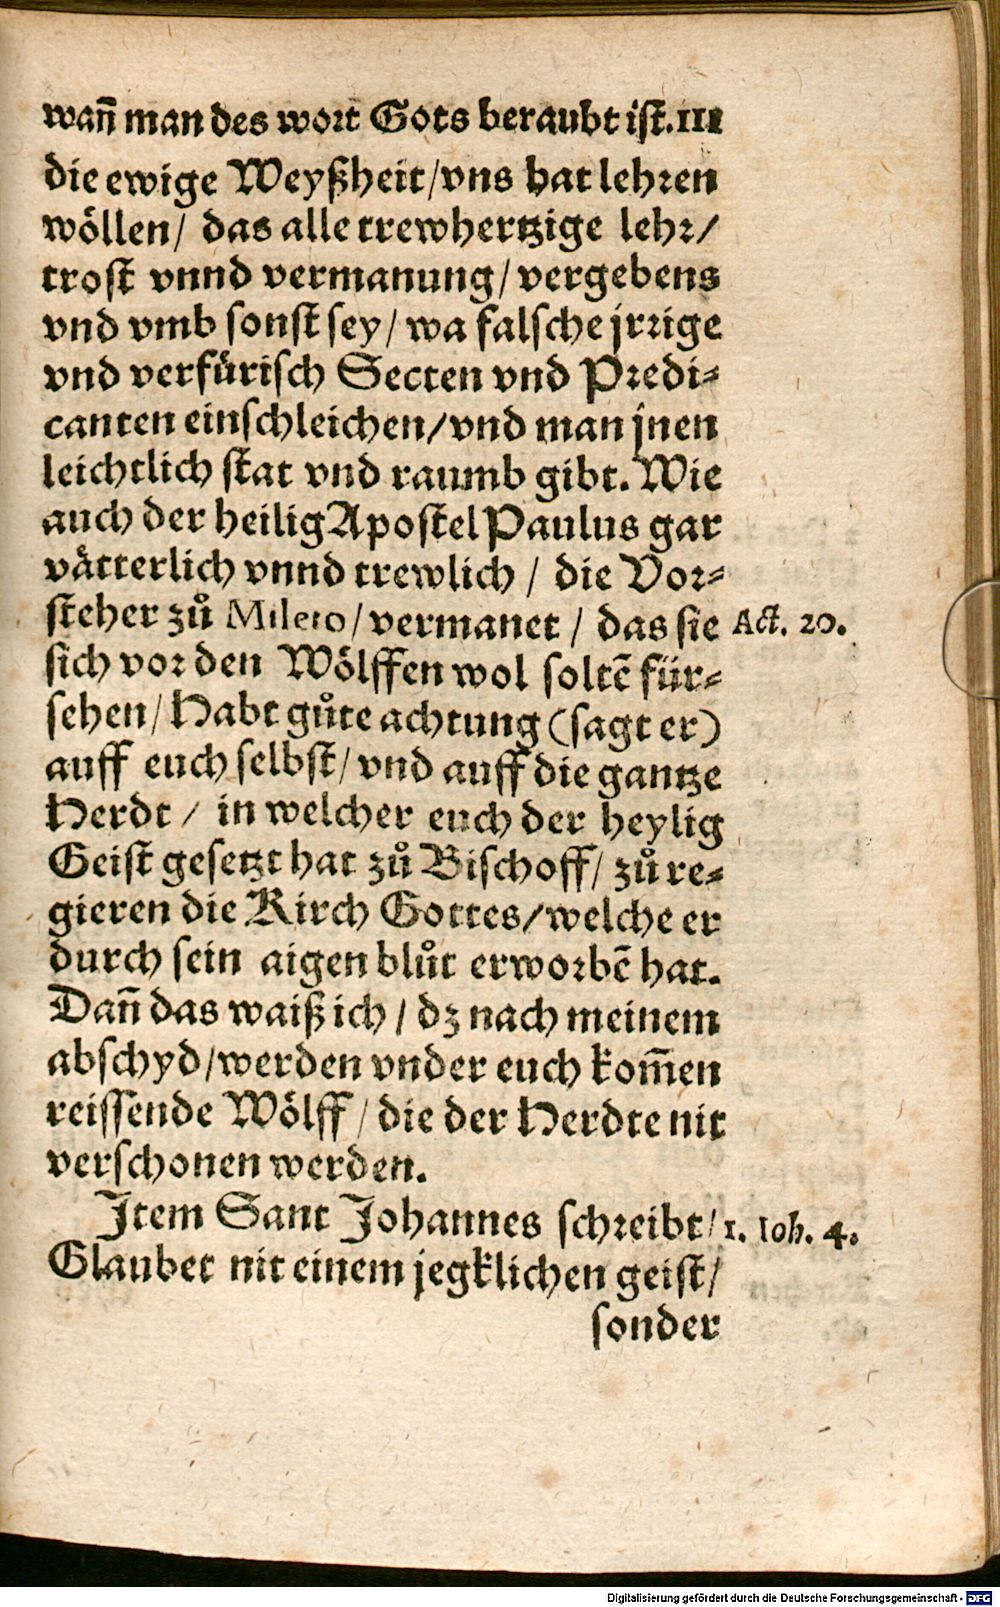 wañ man des wort Gots beraubt ist. III
die ewige Weyßheit/vns hat lehren
wöllen/ das alle trewhertzige lehr/
trost vnnd vermanung/vergebens
vnd vmb sonst sey/ wa falsche jrrige
vnd verfürisch Secten vnd Predi-
canten einschleichen/vnd man jnen
leichtlich stat vnd raumb gibt. Wie
auch der heilig Apostel Paulus gar
vätterlich vnnd trewlich / die Vor-
steher zů Mileto/vermanet / das sie Act. 20.
sich vor den Wölffen wol soltē für-
sehen/Habt gůte achtung (sagt er)
auff euch selbst/vnd auff die gantze
Herdt / in welcher euch der heylig
Geist gesetzt hat zů Bischoff/ zů re-
gieren die Kirch Gottes/welche er
durch sein aigen blůt erworbē hat.
Dañ das waiß ich / dz nach meinem
abschyd/werden vnder euch kom̄en
reissende Wölff/die der Herdte nit
verschonen werden.
Item Sant Johannes schreibt/ 1. Ioh. 4.
Glaubet nit einem jegklichen geist/
sonder
Digitalisierung gefördert durch die Deutsche Forschungsgemeinschaft - DFG